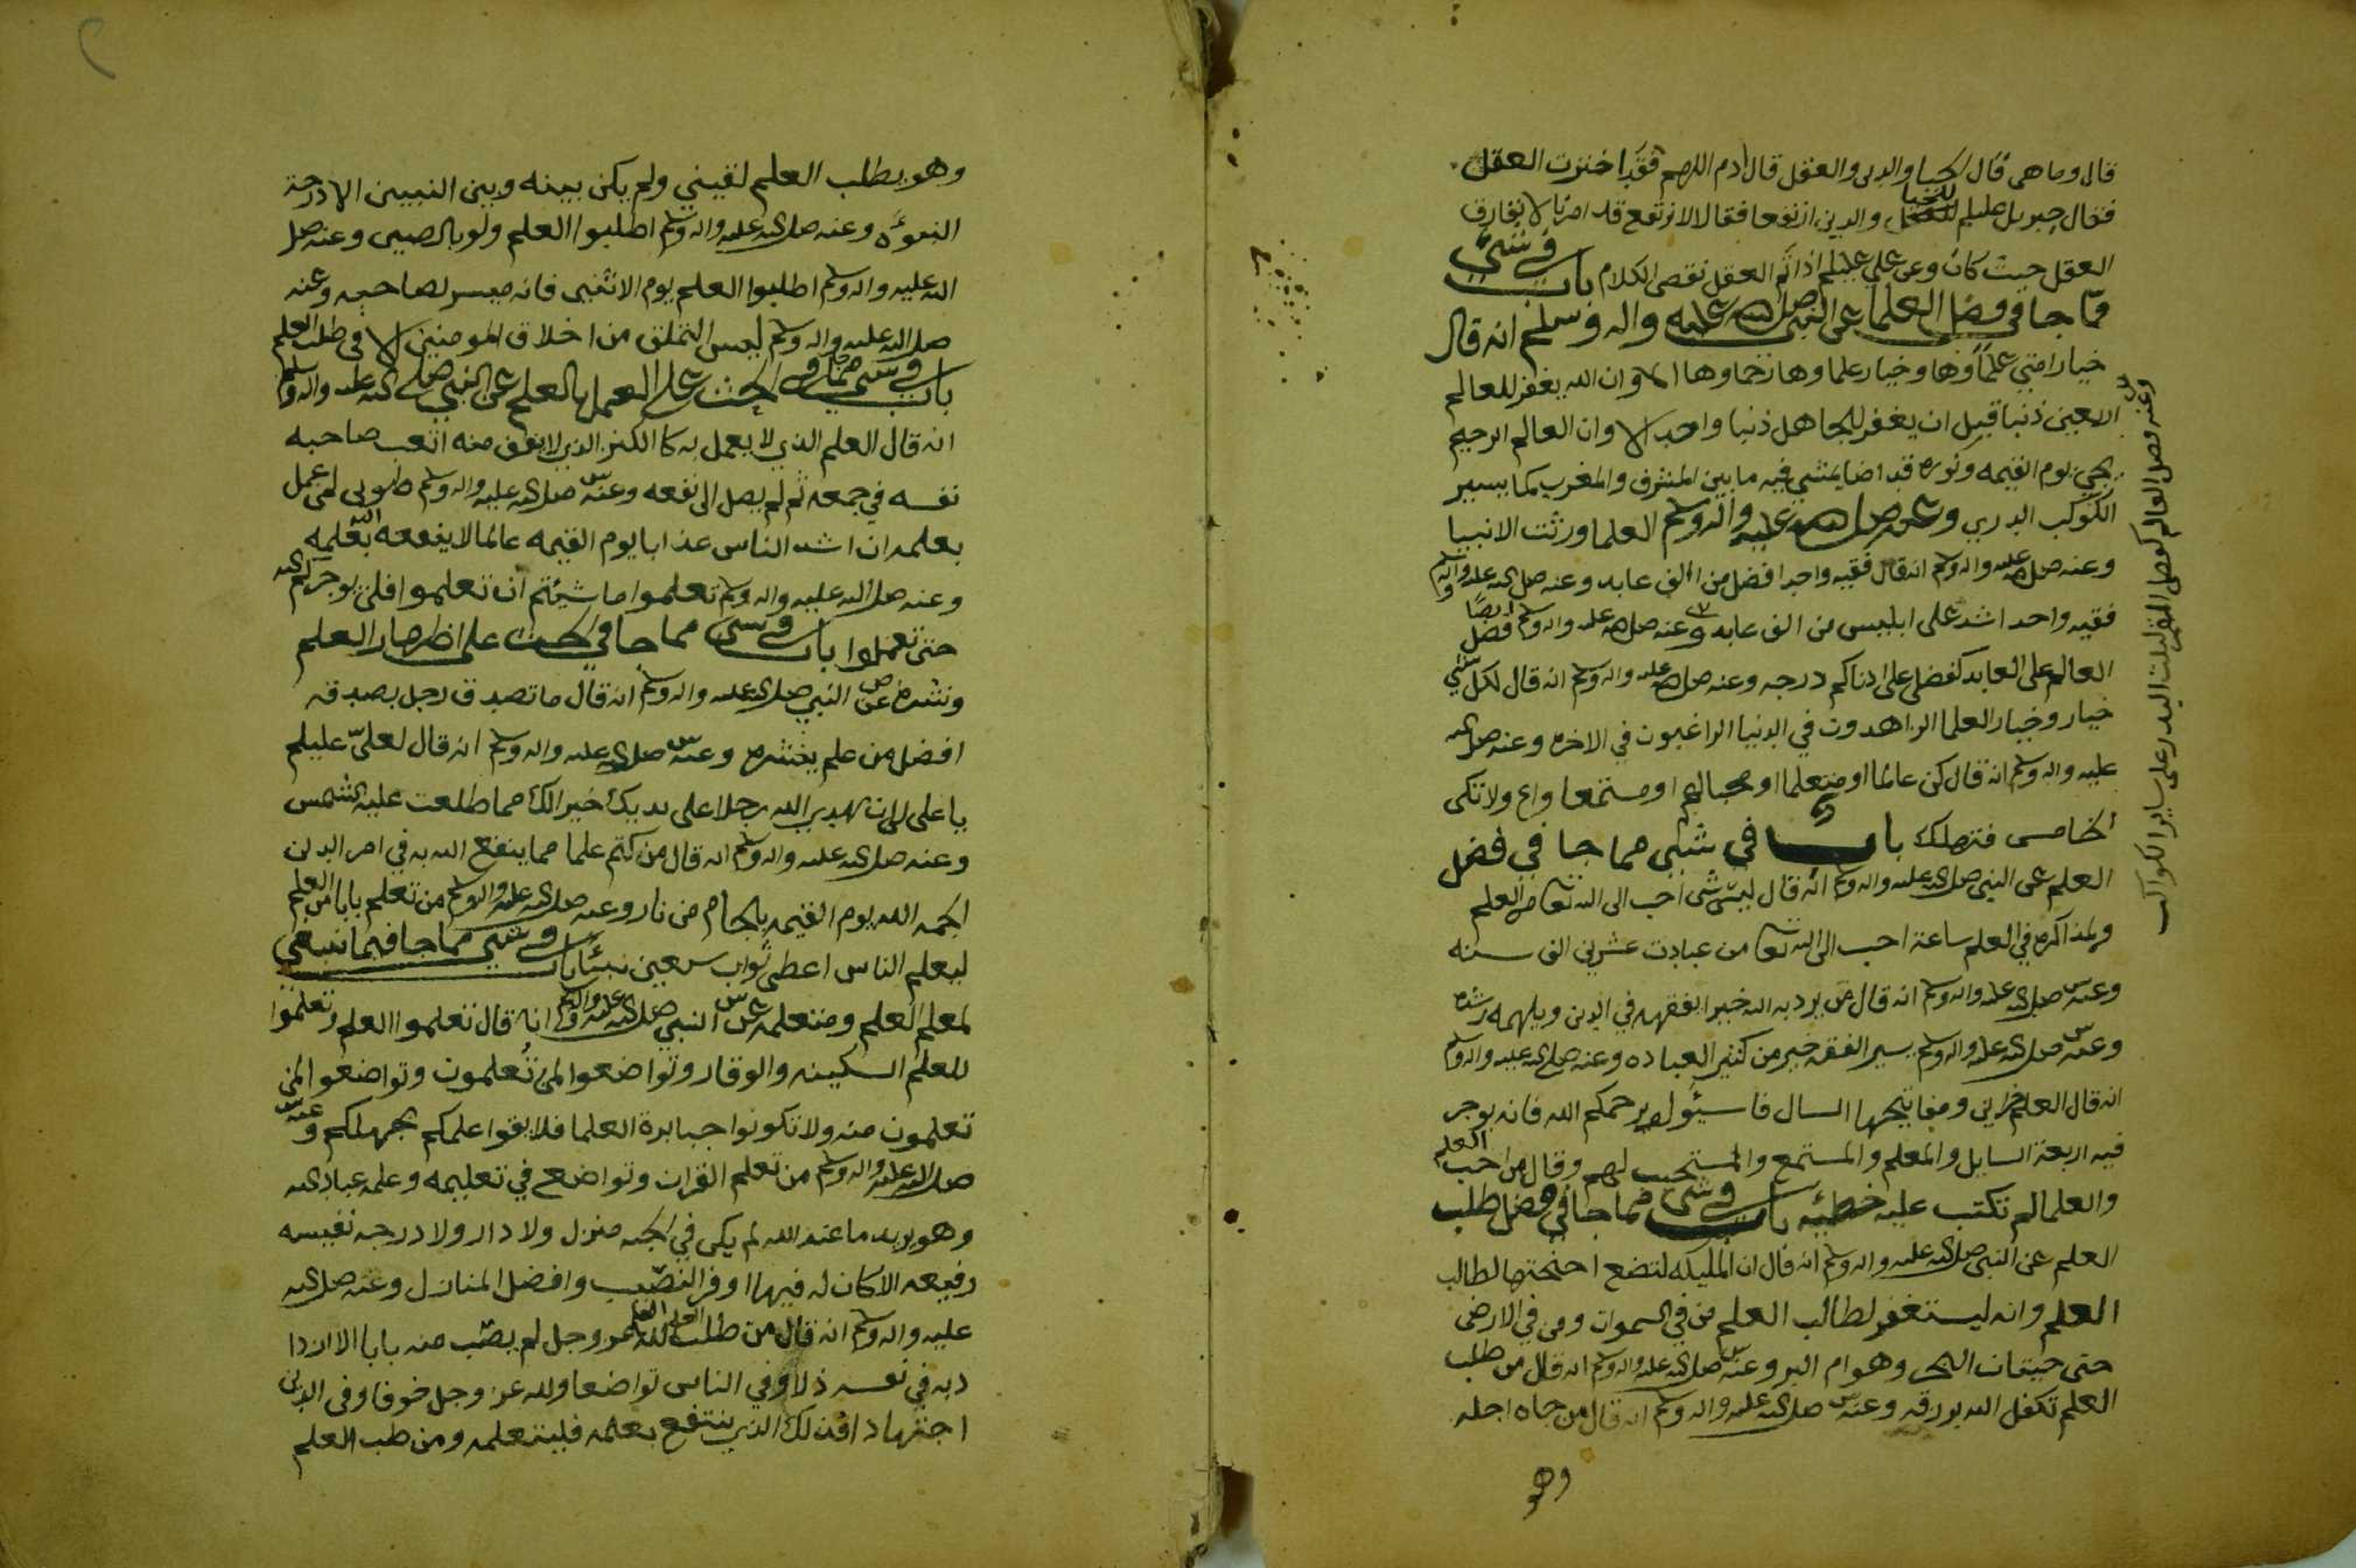 قال وما هي قال الحيا والدين والعقل قال ادم اللهم فقد اخترت العقل
فقال جبريل عليلم للحيا والدين ارتفعا فقالا لا نرتفع قد امرنا لا نفارق
العقل حيث كان وعن علي عليلم اذا تم العقل نقص الكلام باب في شي
مما جا في فضل العلما عن النبي صلى الله عليه واله وسلم انه قال
خيار امتي علماوها وخيار علماوها رحماوها الا وان الله يغفر للعالم
اربعين ذنبا قبل ان يغفر للجاهل ذنبا واحد الا وان العالم الرحيم
يجي يوم القيمه ونوره قد اضا يمشي فيه ما بين المشرق والمغرب كما يسير
الكوكب الدري وعنه صلى الله عليه واله وسلم العلما ورثت الانبيا
وعنه صلى الله عليه واله وسلم انه قال فقيه واحد افضل من الف عابد وعنه صلى الله عليه واله وسلم
فقيه واحد اشد على ابليس من الف عابد وعنه صلى الله عليه واله وسلم ايضا فضل
العالم على العابد كفضلي على ادناكم درجه وعنه صلى الله عليه واله وسلم انه قال لكل شي
خيار وخيار العلما الزاهدون في الدنيا الراغبون في الاخره وعنه صلى الله
عليه واله وسلم انه قال كن عالما او متعلما او مجالع او مستمعا واع ولا تكن
الخامس فتهلك باب في شي مما جا في فضل
العلم عن النبي صلى الله عليه واله وسلم انه قال ليس شي احب الى الله تعا من العلم
ولمذاكره في العلم ساعة احب الى الله تعا من عبادت عشرين الف سنه
وعنه صلى الله عليه واله وسلم انه قال من يرد به الله خيرا يفقهه في الدين ويلهمه رشده
وعنه صلى الله عليه واله وسلم يسير الفقه خير من كثير العباده وعنه صلى الله عليه واله وسلم
انه قال العلم خزاين ومفاتيحها السال فاسيئولو يرحمكم الله فانه يوجر
فيه اربعة السايل والمعلم والمستمع والمستجيب لهم وقال من احب العلم
والعلما لم تكتب عليه خطيئه باب في شي مما جا في فضل طلب
العلم عن النبي صلى الله عليه واله وسلم انه قال ان المليكه لتضع اجنحتها لطالب
العلم وانه ليستغفر لطالب العلم من في السموات ومن في الارض
حتى حيتان البحر وهوام البر وعنه صلى الله عليه واله وسلم انه قال من طلب
العلم تكفل الله برزقه وعنه صلى الله عليه واله وسلم انه قال من جاه اجله
وهو
وعنه فضل العالم كفضل القمر ليلت البدر على ساير الكواكب
وهو يطلب العلم لقيني ولم يكن بينه وبين النبيين الا درجة
النبوه وعنه صلى الله عليه واله وسلم اطلبوا العلم ولو بالصين وعنه صلى
الله عليه واله وسلم اطلبوا العلم يوم الاثنين فانه ميسر لصاحبه وعنه
صلى الله عليه واله وسلم ليس التملق من اخلاق المومنين الا في طلب العلم
باب في شي مما جا في الحث على العمل بالعلم عن النبي صلى الله عليه واله وسلم
انه قال العلم الذي لا يعمل به كا الكنز الذي لا ينفق منه اتعب صاحبه
نفسه في جمعه ثم لم يصل الى نفعه وعنه صلى الله عليه واله وسلم طوبى لمن عمل
بعلمه ان اشد الناس عذابا يوم القيمه عالما لا ينفعه الله بعلمه
وعنه صلى الله عليه واله وسلم تعلموا ما شيتم ان تعلموا فلن يوجركم الله
حتى تعملوا باب في شي مما جا في الحث على اظهار العلم
ونشره عن النبي صلى الله عليه واله وسلم انه قال ما تصدق رجل بصدقه
افضل من علم ينشره وعنه صلى الله عليه واله وسلم انه قال لعلي عليلم
يا علي لان يهدي الله رجلا على يديك خير الك مما طلعت عليه الشمس
وعنه صلى الله عليه واله وسلم انه قال من كتم علما مما ينفع الله به في امر الدين
الجمه الله يوم القيمه بلجام من نار وعنه صلى الله عليه واله وسلم من تعلم بابا من العلم
ليعلم الناس اعطي ثواب سبعين نبيا باب في شي مما جا فيما ينبغي
لمعلم العلم ومتعلمه عن النبي صلى الله عليه واله وسلم انه قال تعلموا العلم وتعلموا
للعلم السكينه والوقار وتواضعوا لمن تعلمون وتواضعوا لمن
تعلمون منه ولا تكونوا جبابرة العلما فلا يقوا علمكم بجهلكم وعنه
صلى الله عليه واله وسلم من تعلم القران وتواضع في تعليمه وعلمه عباد الله
وهو يريد ما عند الله لم يكن في الجنه منزل ولا دار ولا درجه نفيسه
رفيعه الا كان له فيها اوفر النصيب وافضل المنازل وعنه صلى الله
عليه واله وسلم انه قال من طلب العلم لله عز وجل لم يصب منه بابا الا ازدا
د به في نفسه ذلا وفي الناس تواضعا ولله عز وجل خوفا وفي الدين
اجتهادا فذلك الذي ينتفع بعلمه فليتعلمه ومن طلب العلم